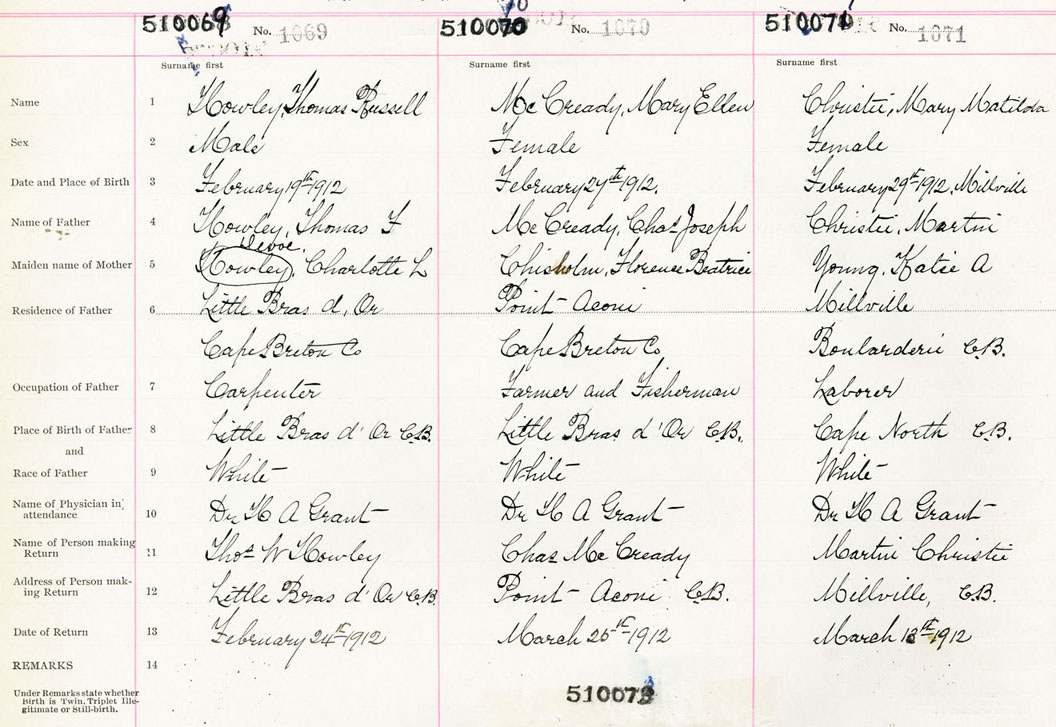 510069 No. 1069 510070 No. 1070 510071 No. 1071
Surname first Surname first Surname first
Name 1 Howley, Thomas Russell McCready, Mary Ellen Christie, Mary Matilda
Sex 2 Male Female Female
Date and Place of Birth 3 February 19th 1912 February 27th 1912. February 29th 1912, Millville
Name of Father 4 Howley, Thomas F McCready, Chas Joseph Christie, Martin
Devoe.
Maiden name of Mother 5 Howley, Charlotte L Chisholm, Florence Beatrice Young, Katie A
Residence of Father 6 Little Bras d, Or Point Aconi Millville
Cape Breton Co Cape Breton Co Boularderie C.B.
Occupation of Father 7 Carpenter Farmer and Fisherman Laborer
Place of Birth of Father 8 Little Bras d' Or C.B. Little Bras d' Or C.B. Cape North C.B.
and
Race of Father 9 White White White
Name of Physician in attendance 10 Dr H A Grant Dr H A Grant Dr H A Grant
Name of Person making Return 11 Thos W Howley Chas McCready Martin Christie
Address of Person making Return 12 Little Bras d' Or C.B. Point Aconi C.B. Millville, C.B.
Date of Return 13 February 24th 1912 March 25th 1912 March 13th 1912
REMARKS 14
Under Remarks state whether
Birth is Twin, Triplet Ille-
gitimate or Still-birth.